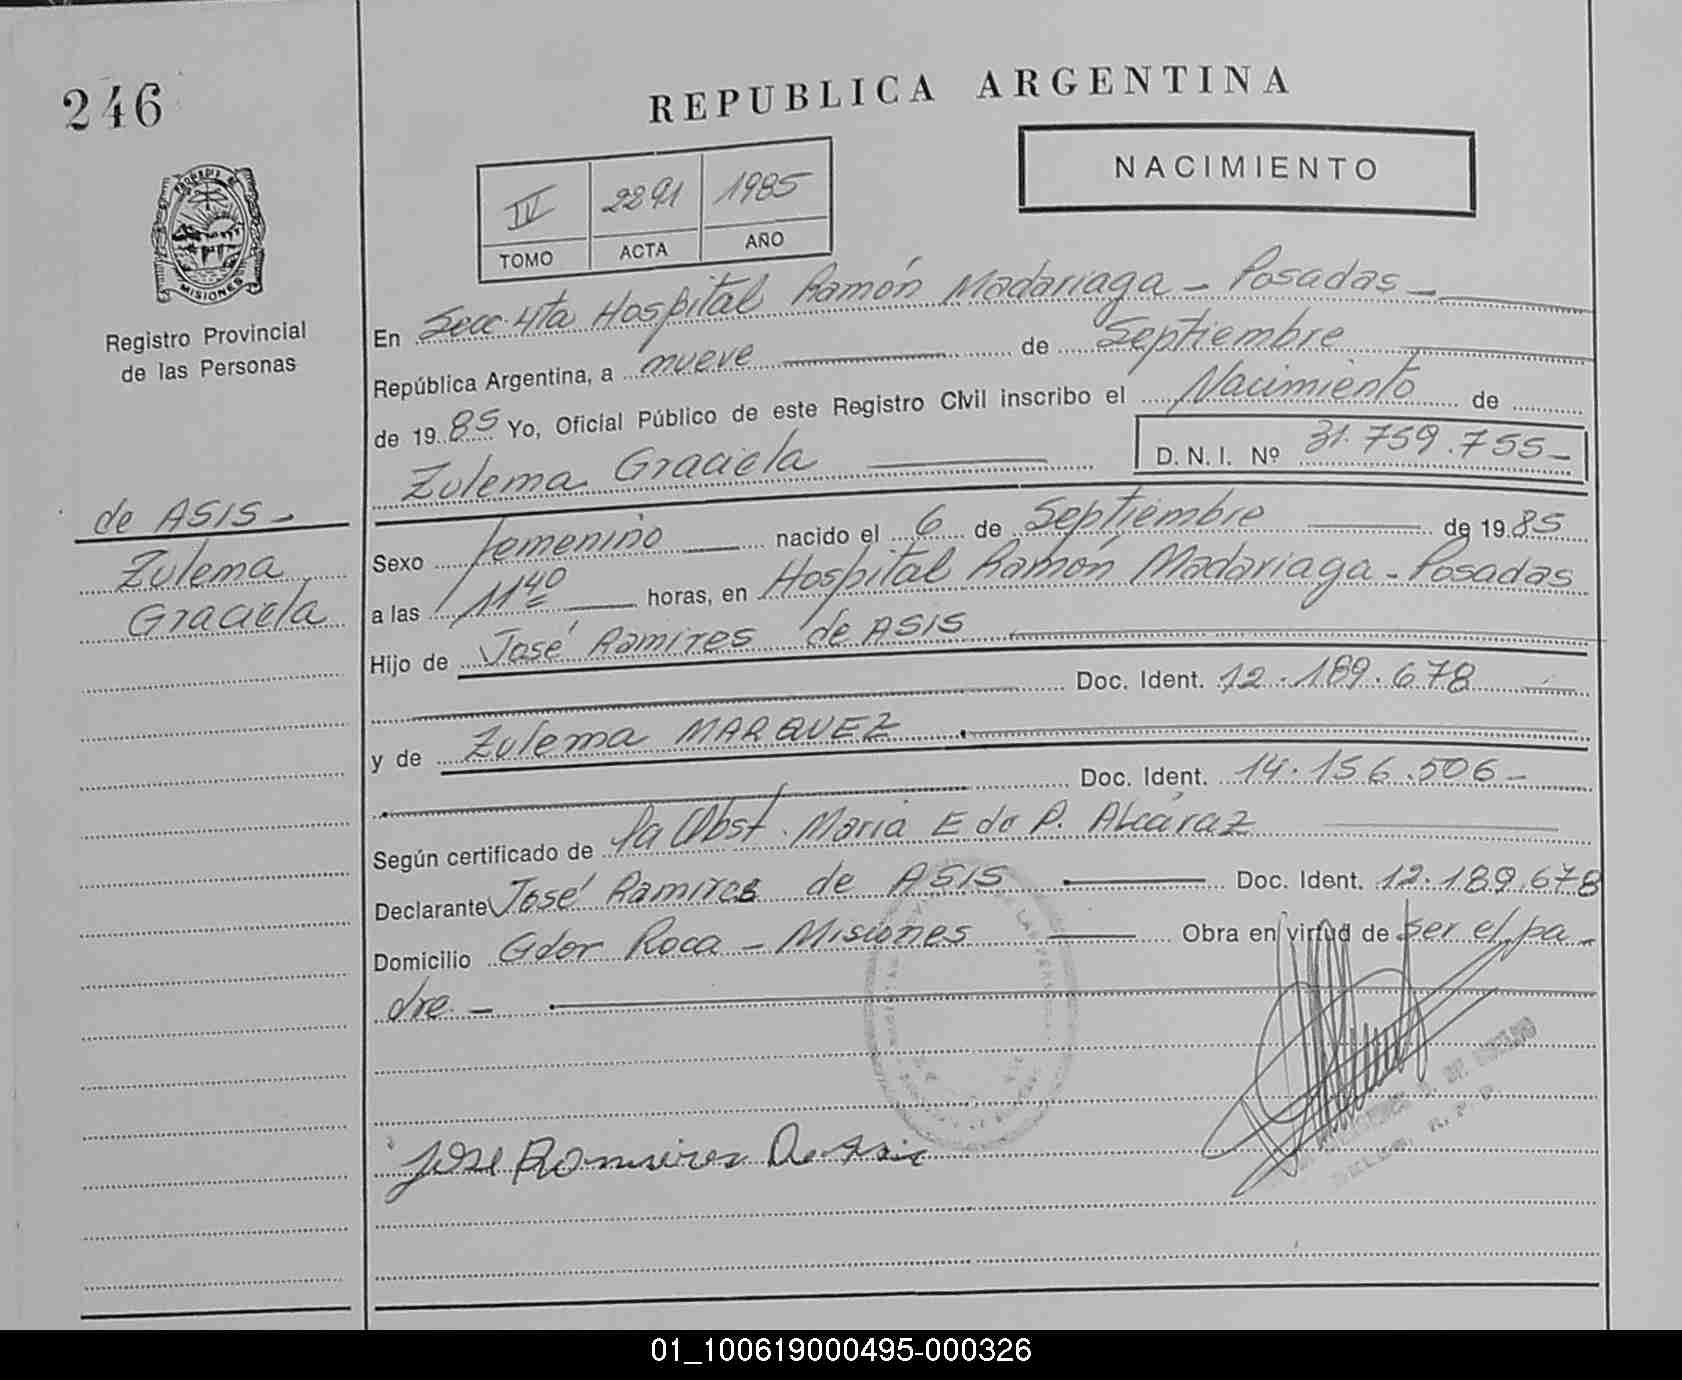 246
REPUBLICA ARGENTINA
NACIMIENTO
IV 2291 1985
TOMO ACTA AÑO
PROVINCIA DE
MISIONES
Registro Provincial
de las Personas
En Secc 4ta Hospital Ramón Madariaga - Posadas -
República Argentina, a nueve de Septiembre
de 1985 Yo, Oficial Público de este Registro Civil inscribo el Nacimiento de
Zulema Graciela D. N. I. Nº 31.759.755-
de ASIS -
Zulema
Graciela
Sexo femenino nacido el 6 de Septiembre de 1985
a las 11 40 horas, en Hospital Ramón Madariaga - Posadas
Hijo de José Ramires de ASIS
Doc. Ident. 12.189.678
y de Zulema MARQUEZ
Doc. Ident. 14.156.506-
Según certificado de la Obst. Maria E de P. Alcáraz
Declarante José Ramires de ASIS Doc. Ident. 12.189.678
Domicilio Gdor Roca - Misiones Obra en virtud de ser el pa-
dre. -
Jose Ramires De Asis
01_100619000495-000326